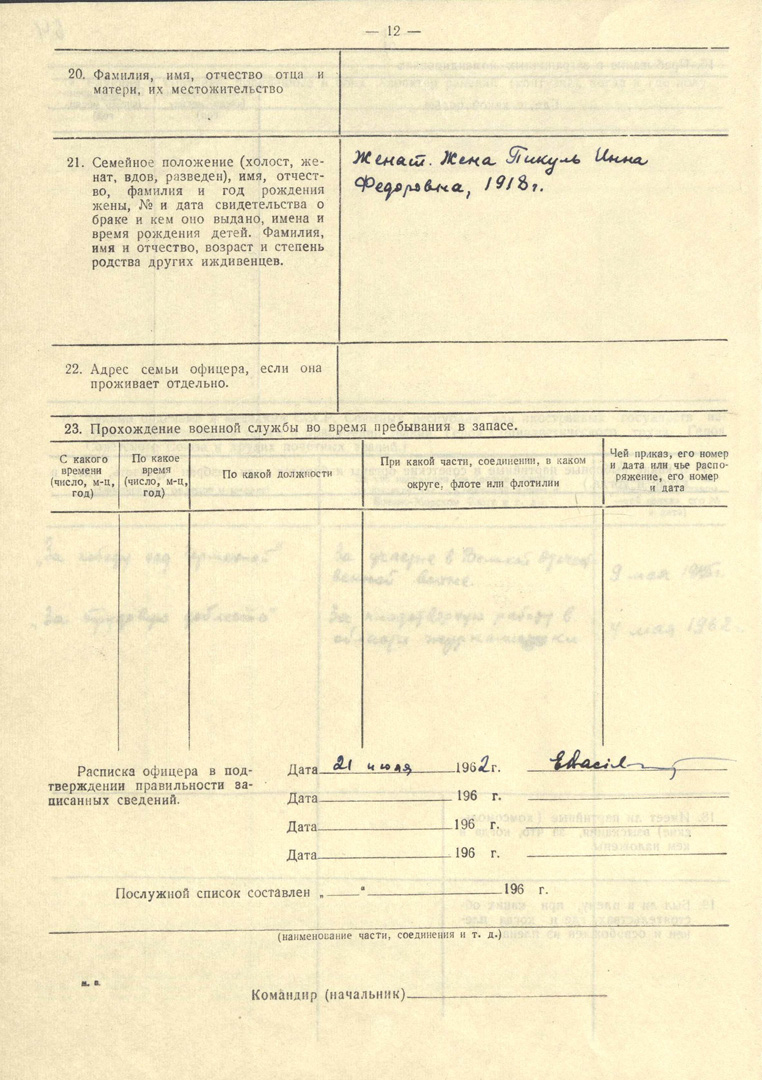 — 12 —
20. Фамилия, имя, отчество отца и
матери, их местожительство
21. Семейное положение (холост, же-
нат, вдов, разведен), имя, отчест-
во, фамилия и год рождения
жены, № и дата свидетельства о
браке и кем оно выдано, имена и
время рождения детей. Фамилия,
имя и отчество, возраст и степень
родства других иждивенцев.
Женат. Жена Пикуль Инна
Федоровна, 1918 г.
22. Адрес семьи офицера, если она
проживает отдельно.
23. Прохождение военной службы во время пребывания в запасе.
С какого
времени
(число, м-ц,
год)
По какое
время
(число, м-ц,
год)
По какой должности
При какой части, соединении, в каком
округе, флоте или флотилии
Чей приказ, его номер
и дата или чье распо-
ряжение, его номер
и дата
„За победу над Германией"
За участие в Великой Отечест-
венной войне.
9 мая 1945 г.
„За трудовую доблесть"
За плодотворную работу в
области журналистики
4 мая 1962
Расписка офицера в под-
тверждении правильности за-
писанных сведений.
Дата 21 июля 1962 г.
Дата 196 г.
Дата 196 г.
Дата 196 г.
Послужной список составлен „ " 196 г.
(наименование части, соединения и т. д.)
м. п.
Командир (начальник)